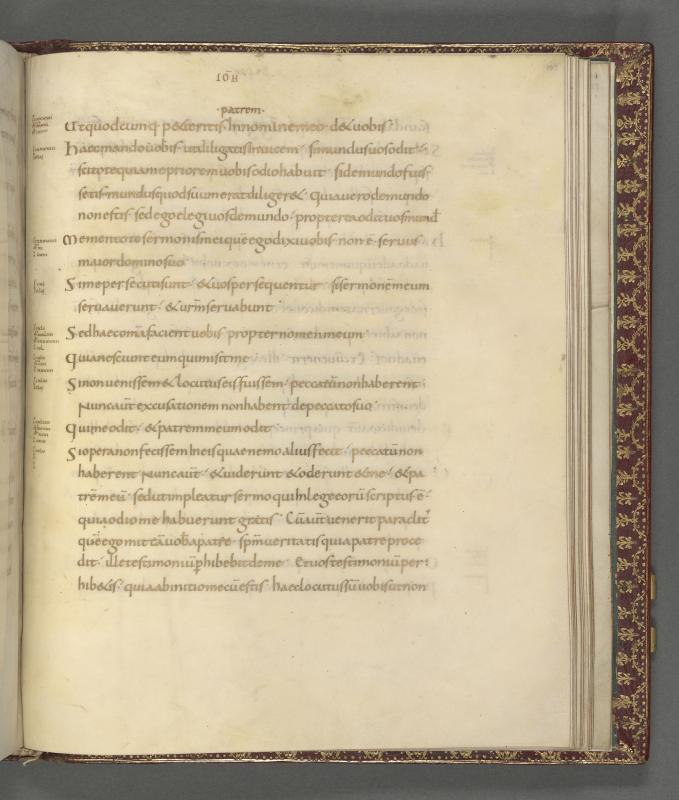 IOH̄
·patrem·
Ut quodcumq; petieritis In nomine meo det uobis
haec mando uobis ut diligatis Inuicem si mundus uos odit
scitote quia me priorem uobis odio habuit si de mundo fuis
setis mundus quod suum erat diligeret quia uero de mundo
non estis sed ego elegi uos de mundo propterea odit uos mund
Mementote sermonis mei quē ego dixi uobis non ē seruus
maior domino suo
Si me persecuti sunt & uos persequentur si sermonem meum
seruauerunt & ur̄m seruabunt
Sed haec om̄a facient uobis propter nomen meum
quia nesciunt eum qui misit me
Si non uenissem & locutus eis fuissem peccatū non haberent
Nunc aut̄ excusationem non habent de peccato suo
qui me odit & patrem meum odit
Si opera non fecissem In eis quae nemo alius fecit peccatū non
haberent Nunc aut̄ & uiderunt & oderunt & me & pa
trē meū sed ut impleatur sermo qui In lege eorū scriptus ē
quia odio me habuerunt gratis Cū aut̄ uenerit paraclit
quē ego mittā uob̄ a patre spm̄ ueritatis qui a patre proce
dit ille testimoniū phibebit de me Et uos testimoniū per
hibetis quia ab initio mecū estis haec locutus sū uobis ut non